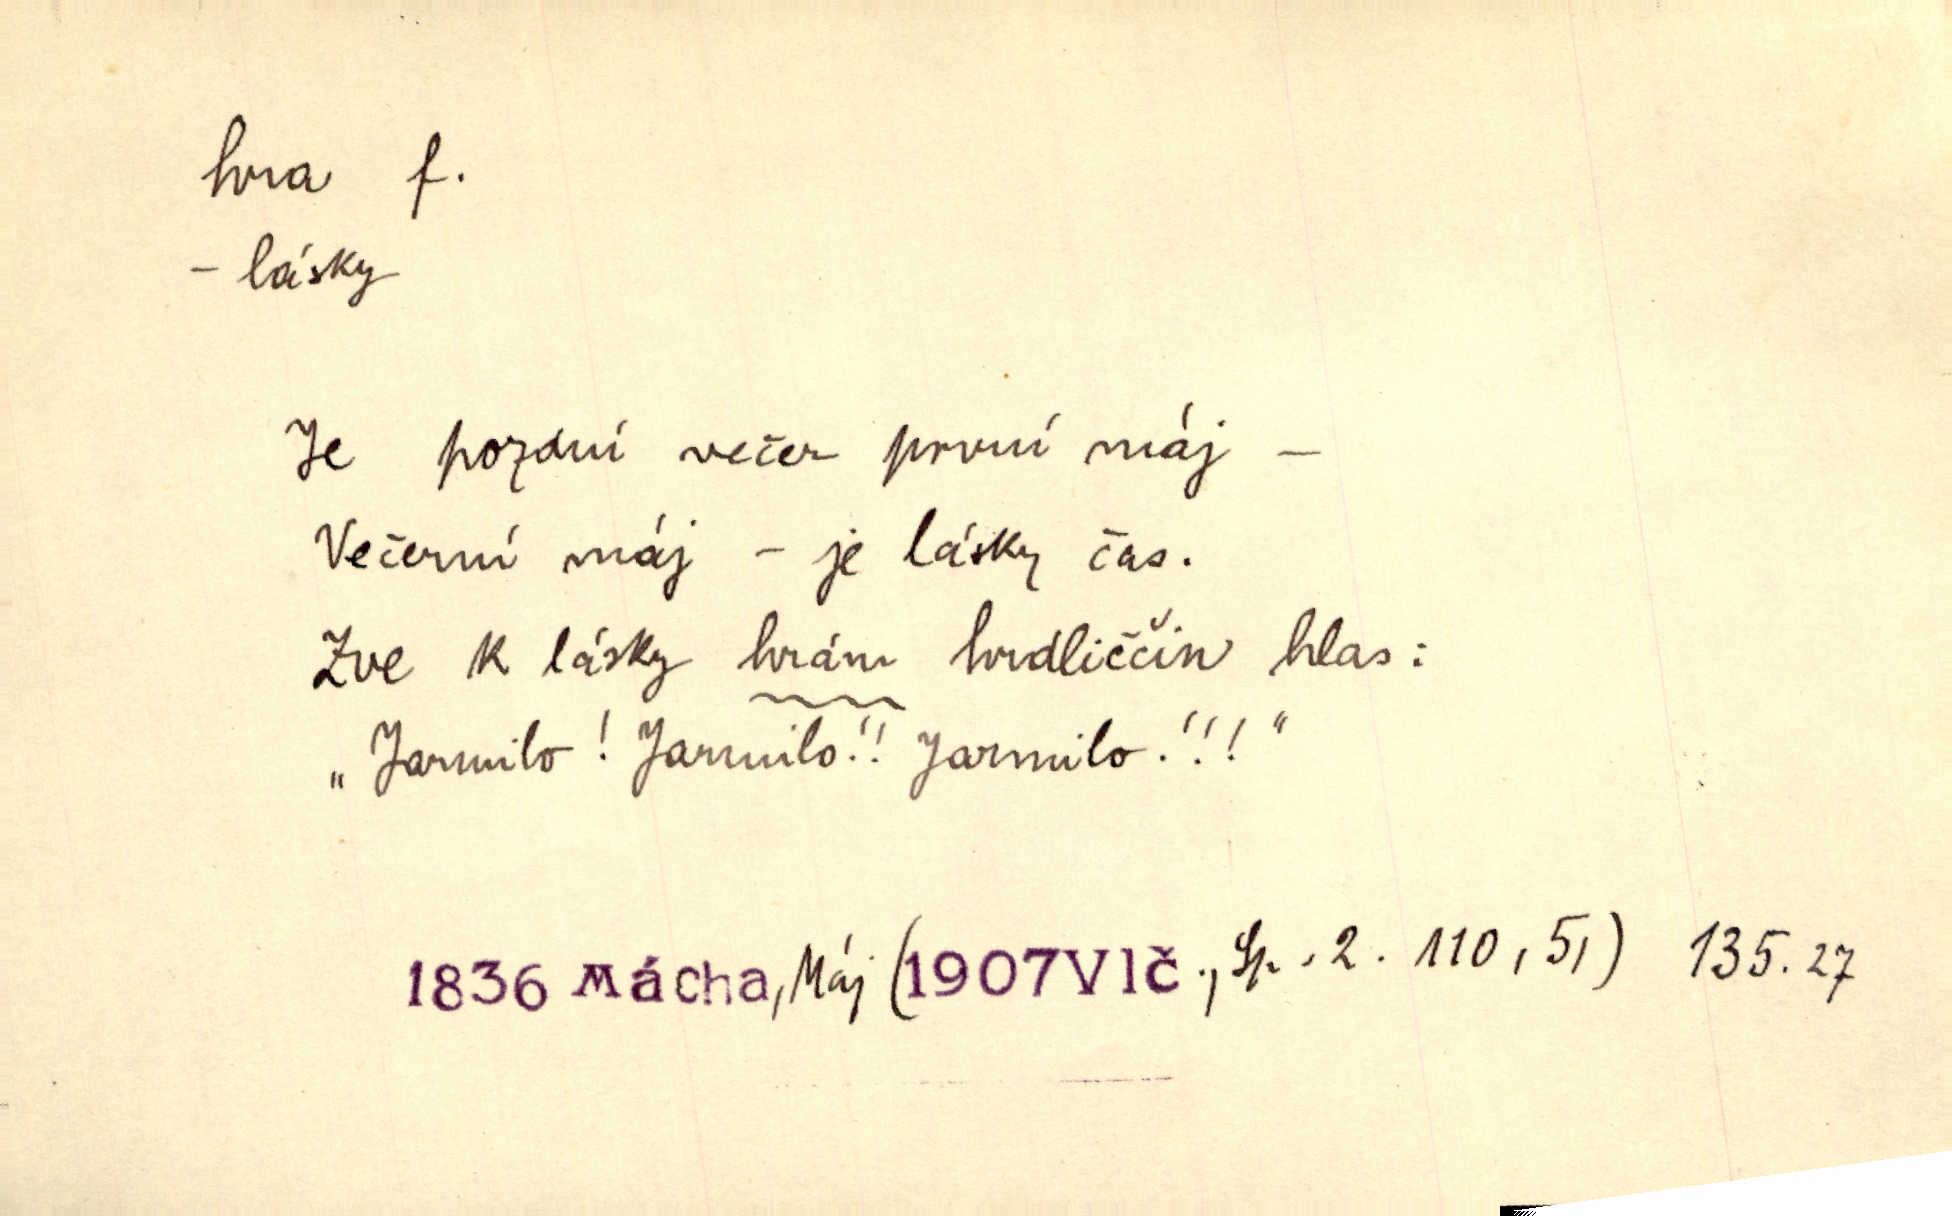 hra f.
- lásky
Je pozdní večer první máj –
Večerní máj – je lásky čas.
Zve k lásky hrám hrdliččin hlas:
„Jarmilo! Jarmilo!! Jarmilo!!!“
1836 Mácha, Máj (1907 Vlč., Sp. 2. 110, 51) 135.27